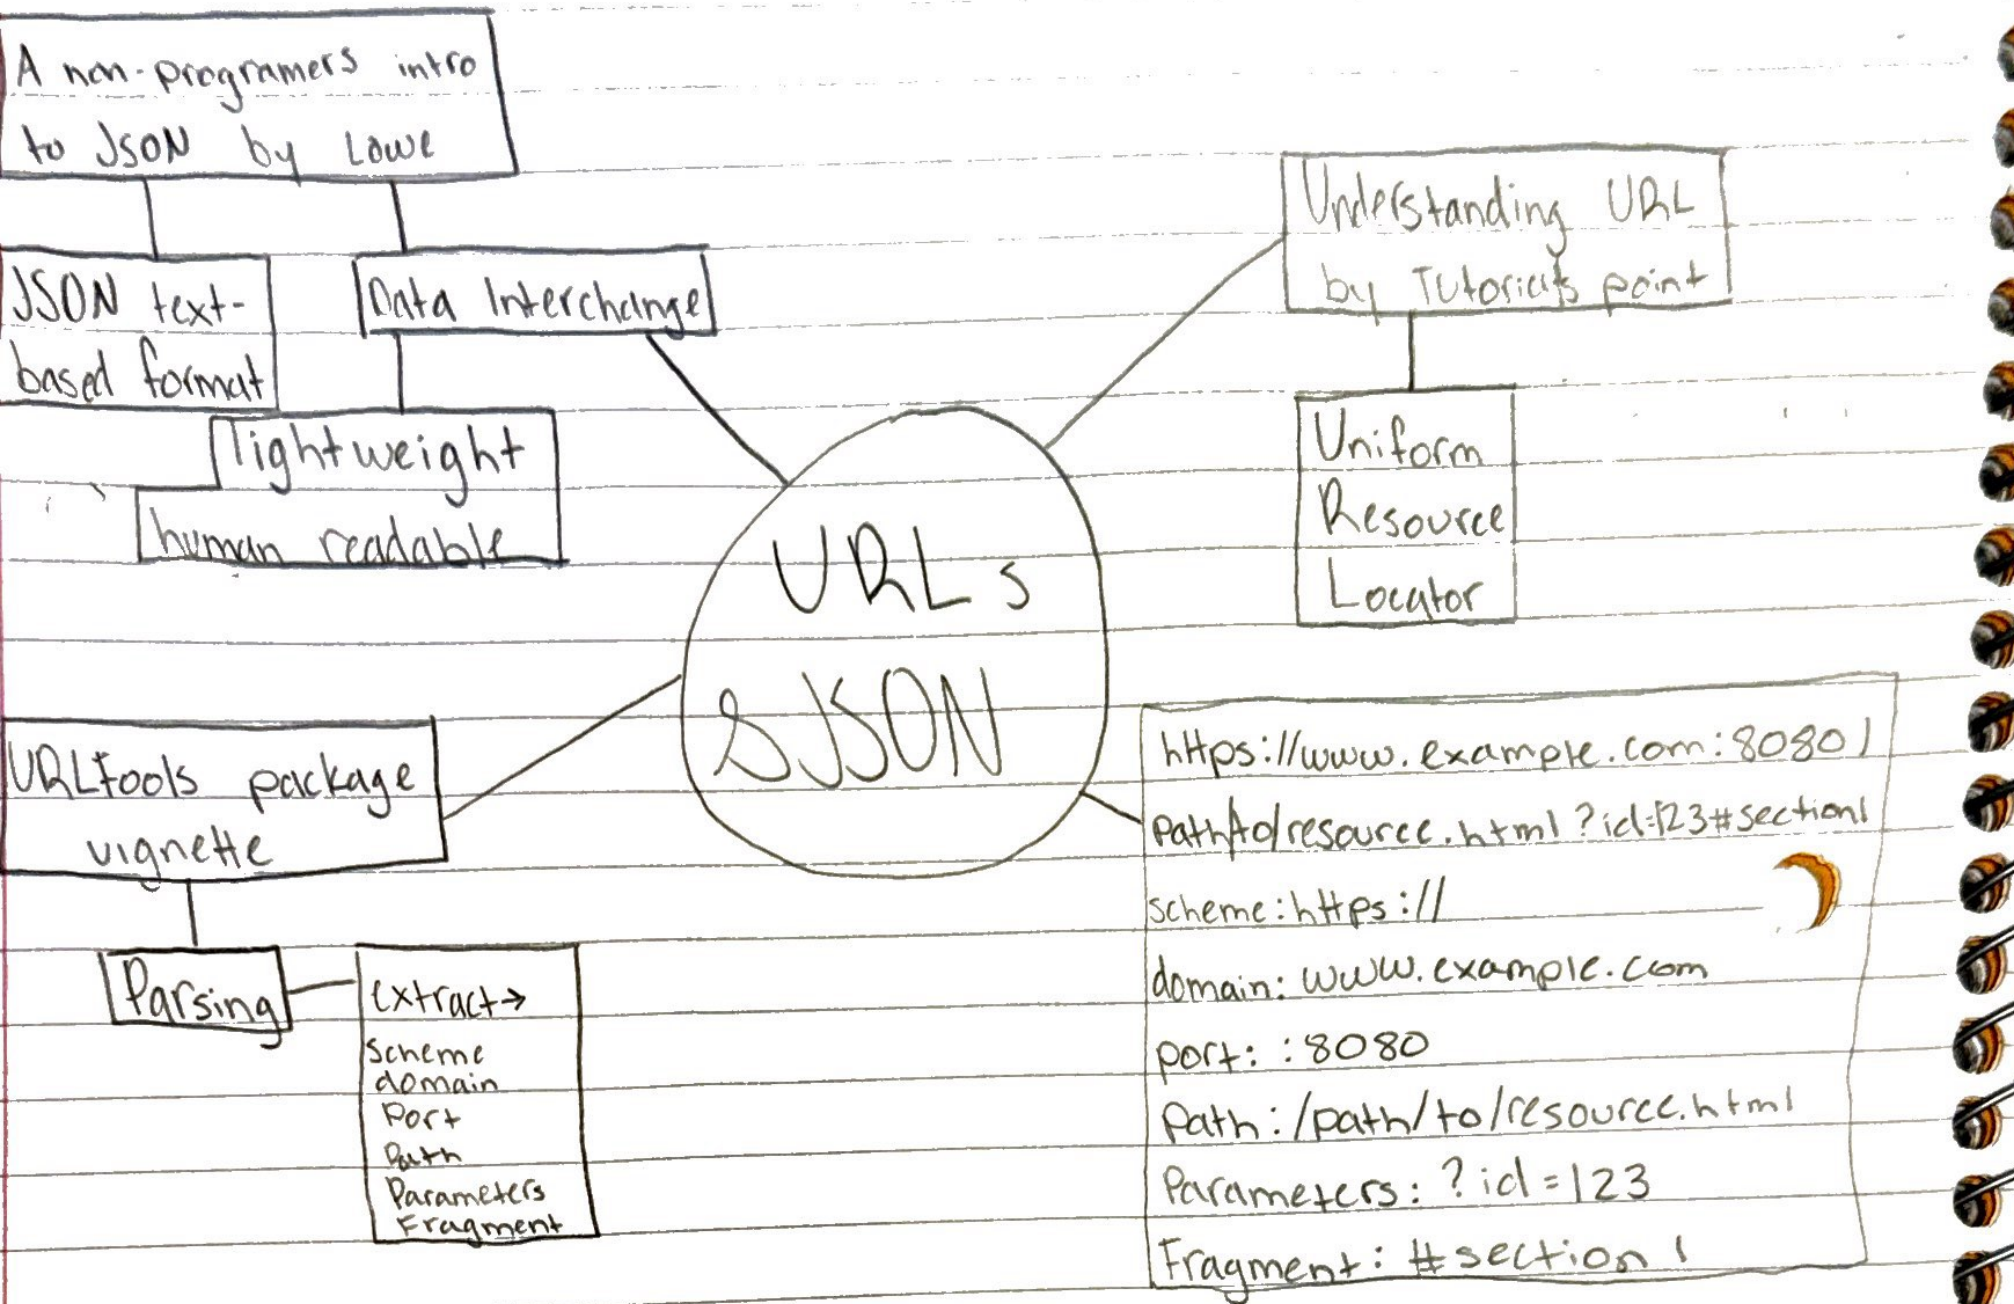 A non-programers intro
to JSON by Lowe
JSON text-
based format
Data Interchange
lightweight
human readable
Understanding URL
by Tutorials point
Uniform
Resource
Locator
URLs
& JSON
URLtools package
vignette
Parsing
extract→
scheme
domain
Port
Path
Parameters
Fragment
https://www.example.com:8080/
path/to/resource.html?id=123#section1
scheme: https://
domain: www.example.com
port: :8080
Path: /path/to/resource.html
Parameters: ?id=123
Fragment: #section 1